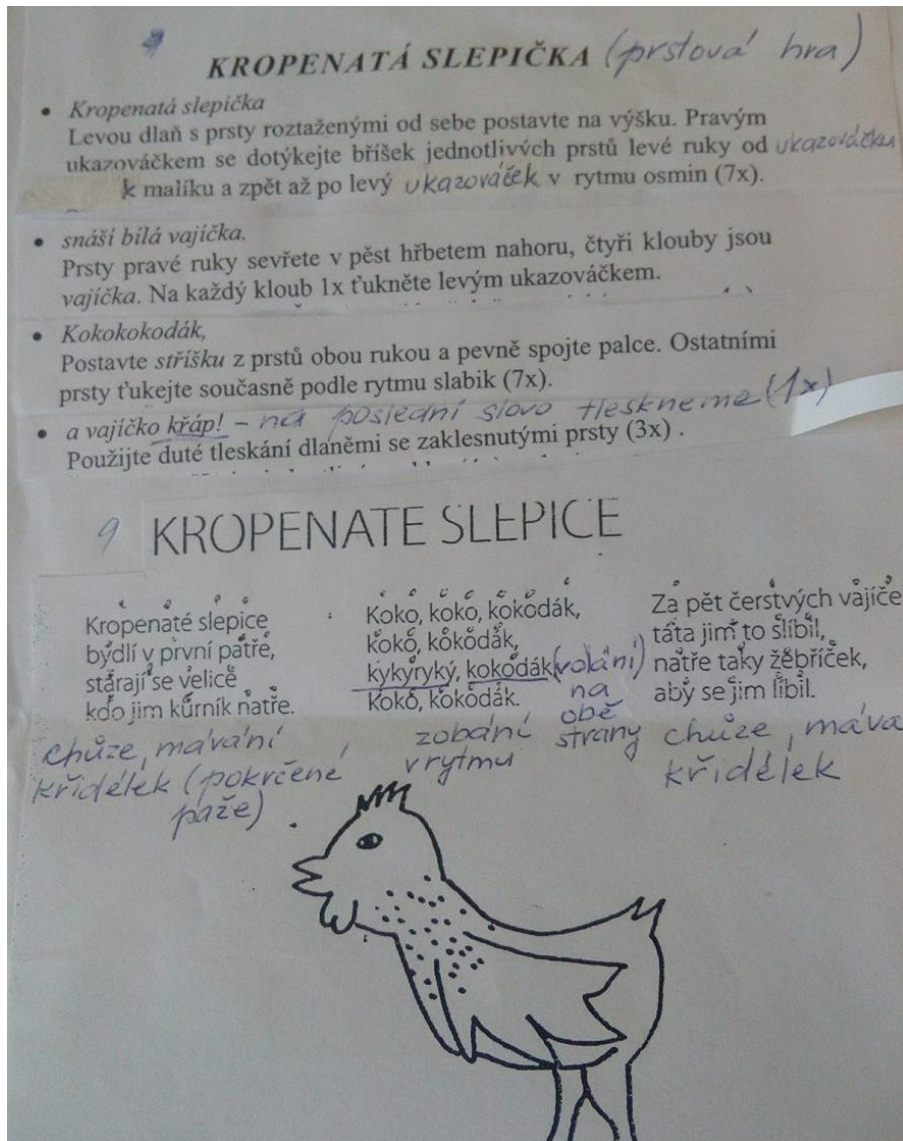 KROPENATÁ SLEPIČKA (prstová hra)
• Kropenatá slepička
Levou dlaň s prsty roztaženými od sebe postavte na výšku. Pravým
ukazováčkem se dotýkejte bříšek jednotlivých prstů levé ruky od ukazováčku
k malíku a zpět až po levý ukazováček v rytmu osmin (7x).
• snáší bílá vajíčka.
Prsty pravé ruky sevřete v pěst hřbetem nahoru, čtyři klouby jsou
vajíčka. Na každý kloub 1x ťukněte levým ukazováčkem.
• Kokokokodák,
Postavte stříšku z prstů obou rukou a pevně spojte palce. Ostatními
prsty ťukejte současně podle rytmu slabik (7x).
• a vajíčko křáp! – na poslední slovo tleskneme (1x)
Použijte duté tleskání dlaněmi se zaklesnutými prsty (3x) .
9 KROPENATE SLEPICE
Kropenaté slepice
bydlí v první patře,
starají se velice
kdo jim kurník natře.
chůze, mávání
křidélek (pokrčené
paže)
Koko, koko, kokodák,
koko, kokodák,
kykyryký, kokodák (volání
koko, kokodák. na
obě
strany)
zobání
v rytmu
Za pět čerstvých vajíče
táta jim to slíbil,
natře taky žebříček,
aby se jim líbil.
chůze, máva
křidélek